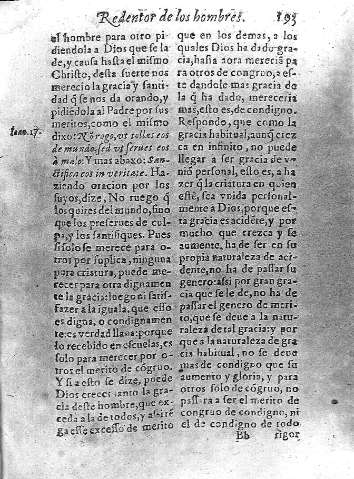 Redentor de los hombres. 193
el hombre para otro pi-
diendola a Dios que se la
dè, y causa hasta el mismo
Christo, desta suerte nos
merecio la gracia y santi-
dad q̃ se nos da orando, y
pidiẽdola al Padre por sus
meritos, como el mismo
Ioan. 17.
dixo: Nõ rogo, vt tollas eos
de mundo, sed vt serues eos
à malo: Y mas abaxo: San-
ctifica eos in veritate. Ha-
ziendo oracion por los
suyos, dize, No ruego q̃
los quites del mundo, sino
que los preserues de cul-
pa, y los santifiques. Pues
si solo se merece para o-
tros por suplica, ninguna
pura criatura, puede me-
recer para otra dignamen
te la gracia: luego ni satis-
fazer à la iguala, que esso
es digna, o condignamen-
te: es verdad llana: porque
lo recebido en escuelas, es
solo para merecer por o-
tros el merito de cõgruo.
Y si a esto se dize, puede
Dios crecer tanto la gra-
cia deste hombre, que ex-
ceda a la de todos, y assi rẽ
ga esse excesso de merito
que en los demas, a los
quales Dios ha dado gra-
cia, hasta aora merecia pa
ra otros de congruo, a es-
te dandole mas gracia de
la q̃ ha dado, mereceria
mas, esto es, de condigno.
Respondo, que como la
gracia habitual, aunq̃ crez
ca en infinito, no puede
llegar a ser gracia de vn
nio personal, esto es, a ha
zer q̃ la criatura en quien
estè, sea vnida personal-
mente à Dios, porque es-
ta gracia es accidẽte, y por
mucho que crezca y se
aumente, ha de ser en su
propia naturaleza de aci-
dente, no ha de passar su
genero: assi por gran gra-
cia que se le dè, no ha de
passar el genero de meri-
to, que se deue a la natu-
raleza de tal gracia: y por
que a la naturaleza de gra
cia habitual, no se deue
mas de condigno que su
aumento y gloria, y para
otros solo de cõgruo, no
passara a ser el merito de
congruo de condigno, ni
el de condigno de todo
Bb rigor